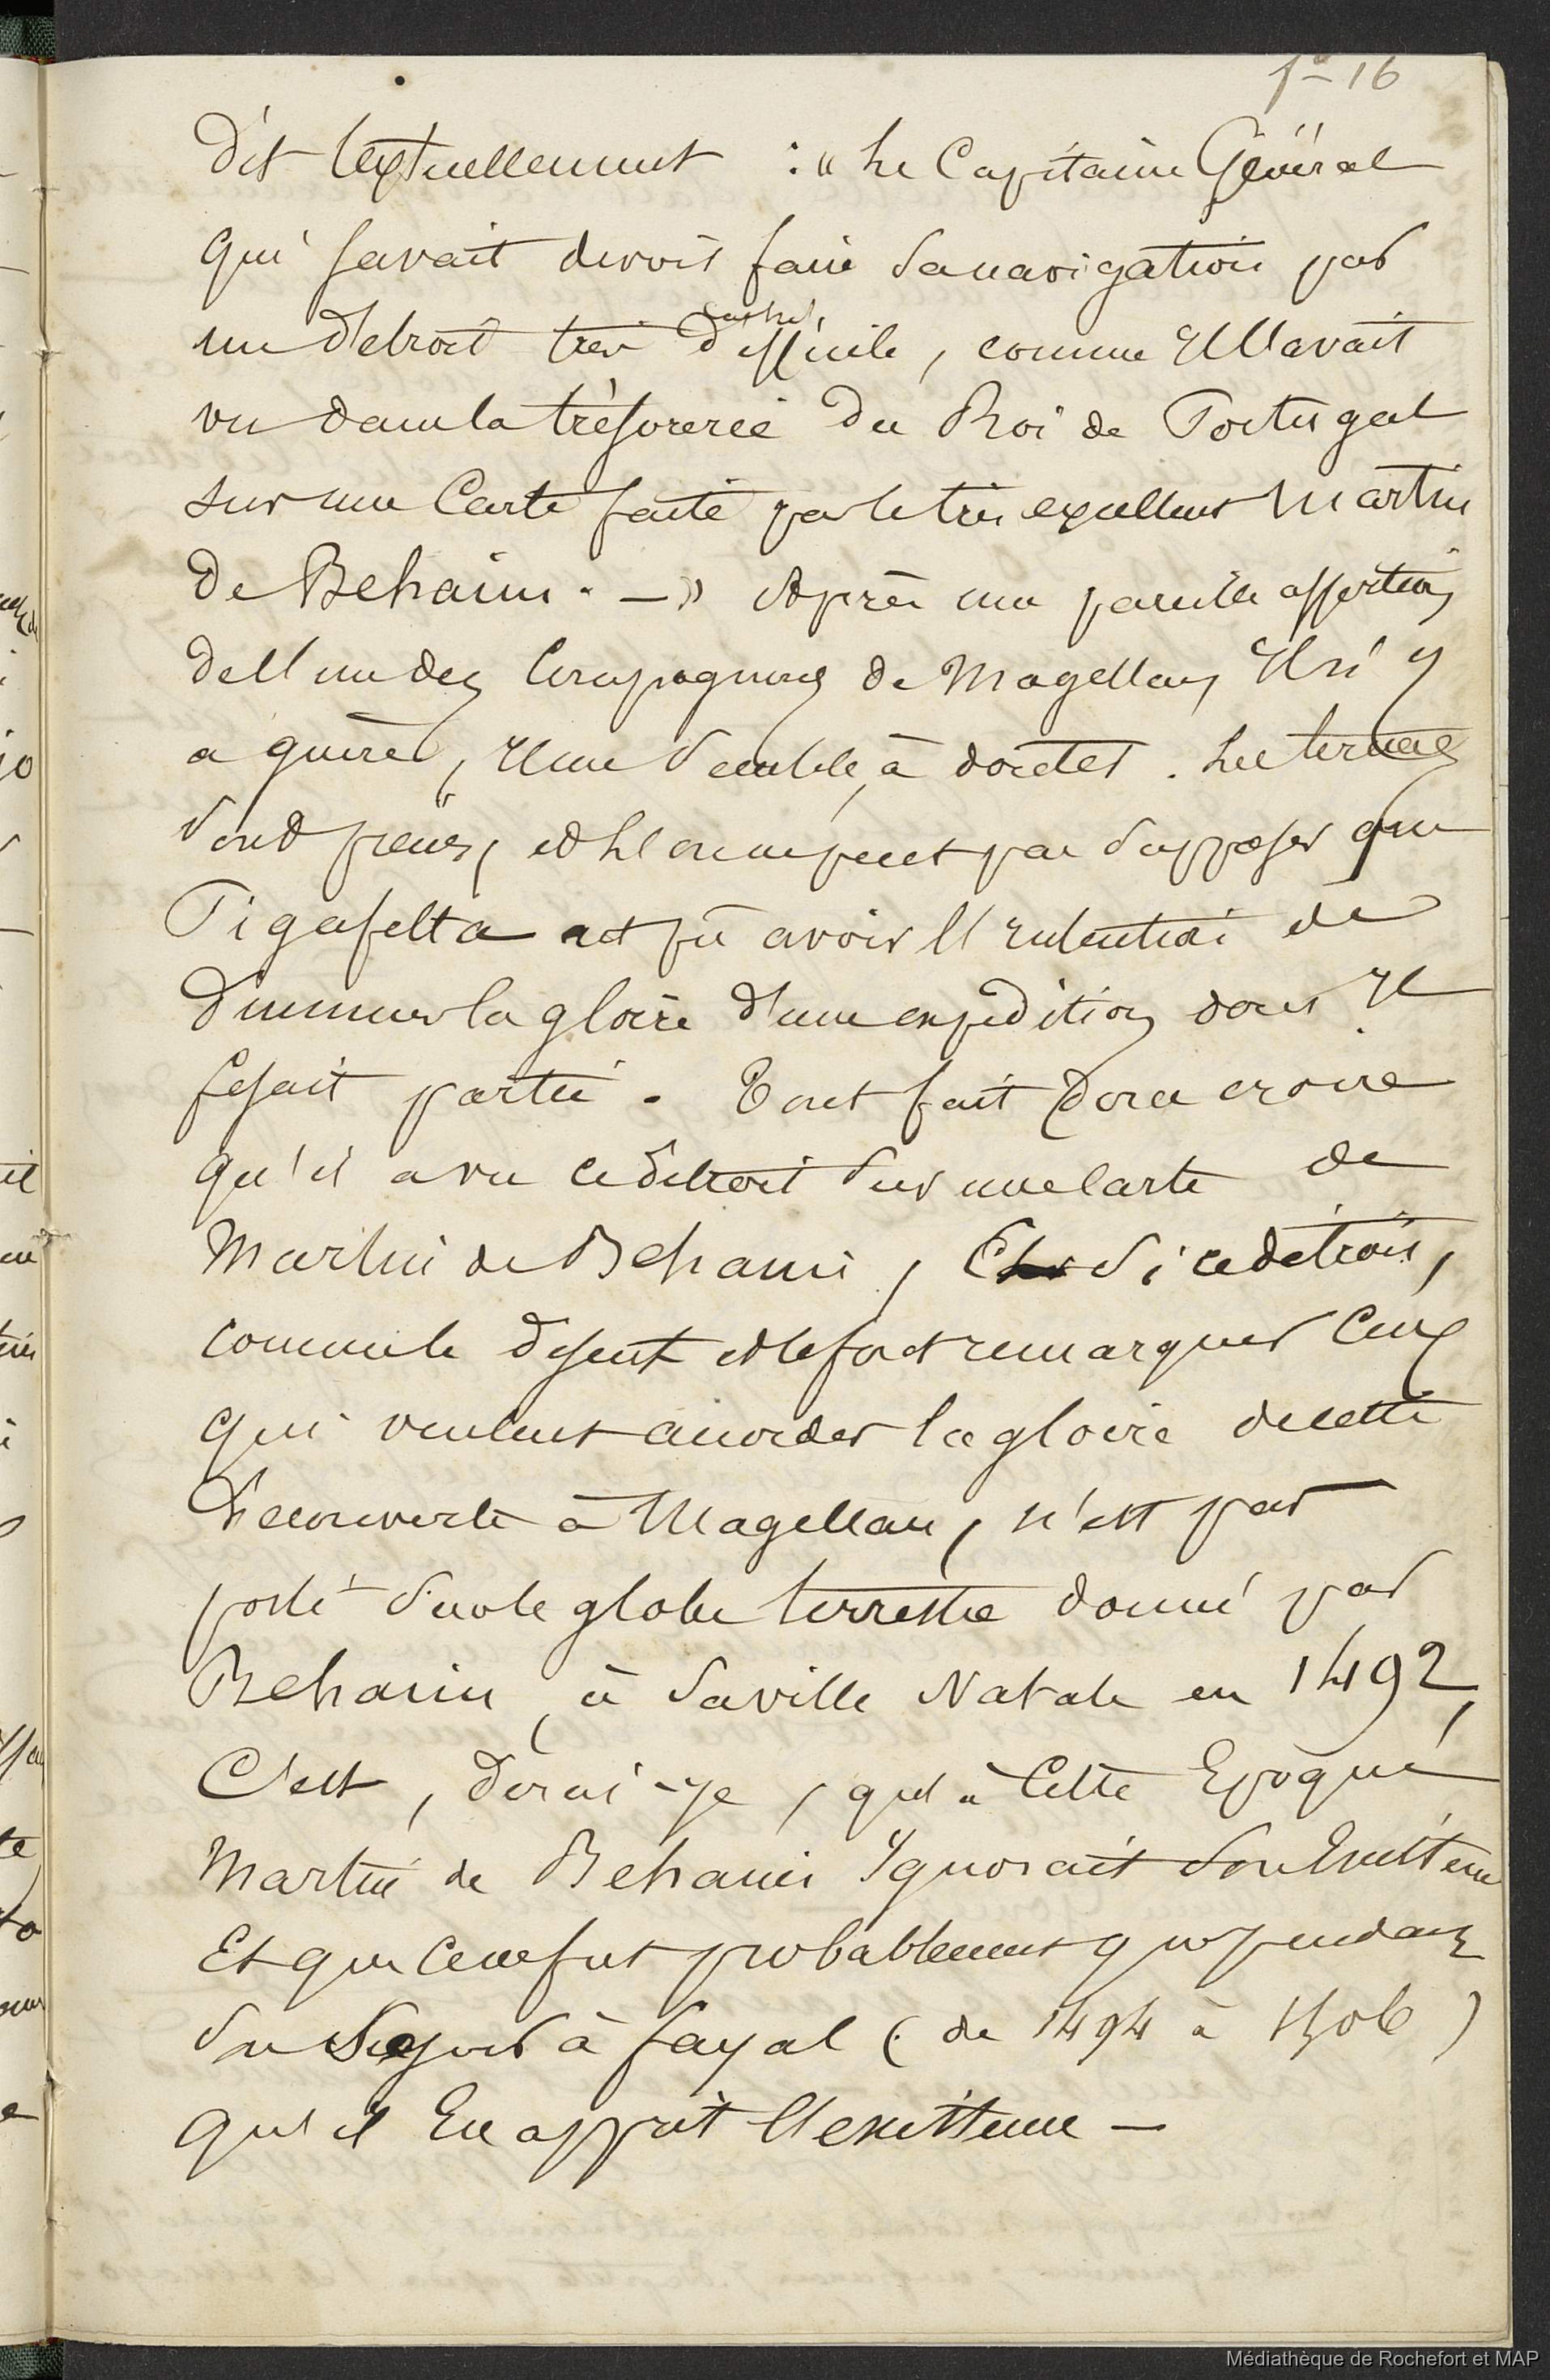 fo 16
dit textuellement : « Le Capitaine Général
qui savait devoir faire sa navigation par
un détroit très difficile, comme Il l'avait
caché,
vu dans la trésorerie du Roi de Portugal
sur une Carte faite par le très excellent Martin
de Behaim. — » Après une pareille assertion
de l'un des Compagnons de Magellan, Il n'y
a guère, Il me semble, à douter. Les termes
sont précis, et l'on ne peut pas supposer que
Pigafetta ait pû avoir l'intention de
diminuer la gloire d'une expédition dont Il
fesait partie. Tout fait donc croire
qu'il a vu ce détroit sur une Carte de
Martin de Behaim, Et si ce détroit,
comme le disent et le font remarquer Ceux
qui veulent accorder la gloire de cette
découverte à Magellan, n'est pas
porté sur le globe terrestre donné par
Behaim, à sa ville Natale en 1492,
C'est, dirai-je, qu'à Cette Epoque
Martin de Behaim Ignorait son Existence
Et que ce ne fut probablement que pendant
son Séjour à fayal (de 1494 à 1506)
qu'il En apprit l'existence —
Médiathèque de Rochefort et MAP